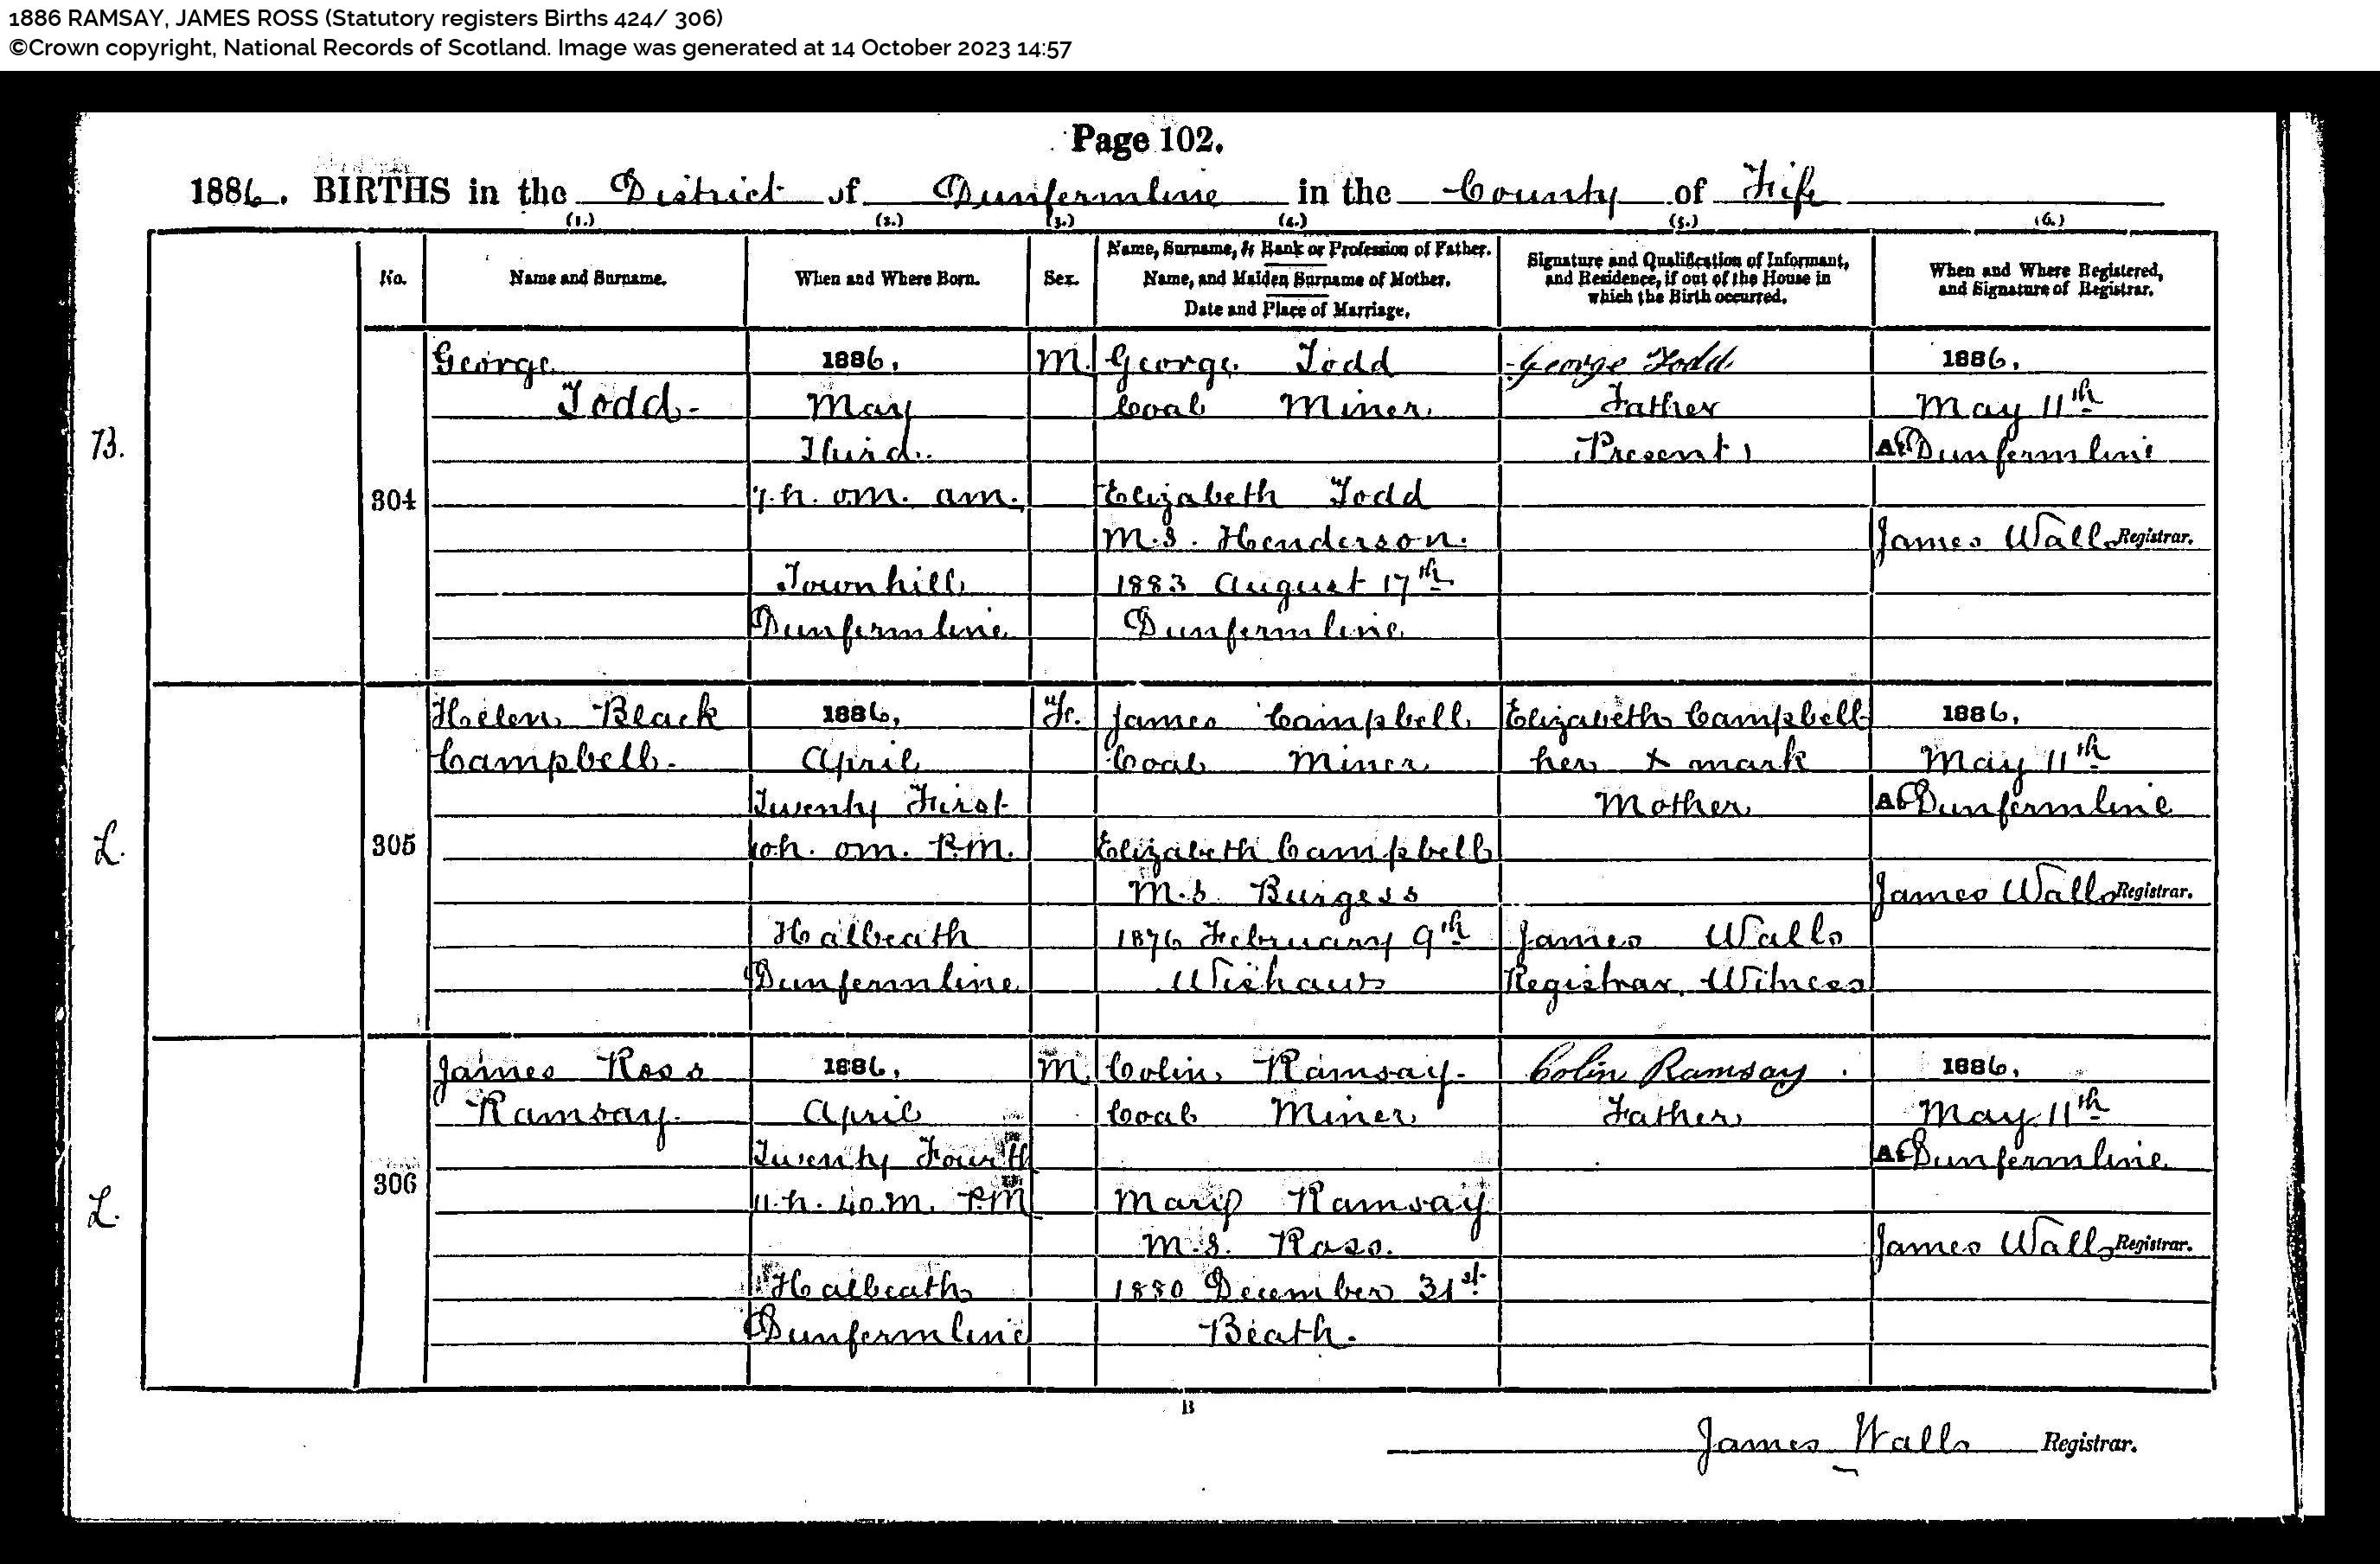 1886 RAMSAY, JAMES ROSS (Statutory registers Births 424/ 306)
©Crown copyright, National Records of Scotland. Image was generated at 14 October 2023 14:57
Page 102.
1886. BIRTHS in the District of Dunfermline in the County of Fife
(1.) (2.) (3.) (4.) (5.) (6.)
No.
Name and Surname.
When and Where Born.
Sex.
Name, Surname, & Rank or Profession of Father.
Name, and Maiden Surname of Mother.
Date and Place of Marriage.
Signature and Qualification of Informant,
and Residence, if out of the House in
which the Birth occurred.
When and Where Registered,
and Signature of Registrar.
B.
304
George
Todd.
1886.
May
Third.
7.h. om. am.
Townhill
Dunfermline
M.
George Todd
Coal Miner
Elizabeth Todd
M.S. Henderson.
1883 August 17th
Dunfermline
George Todd
Father
Present
1886.
May 11th
At Dunfermline
James Walls Registrar.
L.
305
Helen Black
Campbell.
1886.
April
Twenty First
10h. om. P.M.
Halbeath
Dunfermline
F.
James Campbell
Coal Miner
Elizabeth Campbell
M.S Burgess
1876 February 9th
Wishaw
Elizabeth Campbell
her x mark
Mother
James Walls
Registrar. Witness
1886.
May 11th
At Dunfermline
James Walls Registrar.
L.
306
James Ross
Ramsay.
1886.
April
Twenty Fourth
11.h. 40.m. P.M
Halbeath
Dunfermline
M
Colin Ramsay.
Coal Miner
Mary Ramsay
M.S. Ross.
1880 December 31st
Beath.
Colin Ramsay.
Father
1886.
May 11th
At Dunfermline
James Walls Registrar.
B
James Walls Registrar.